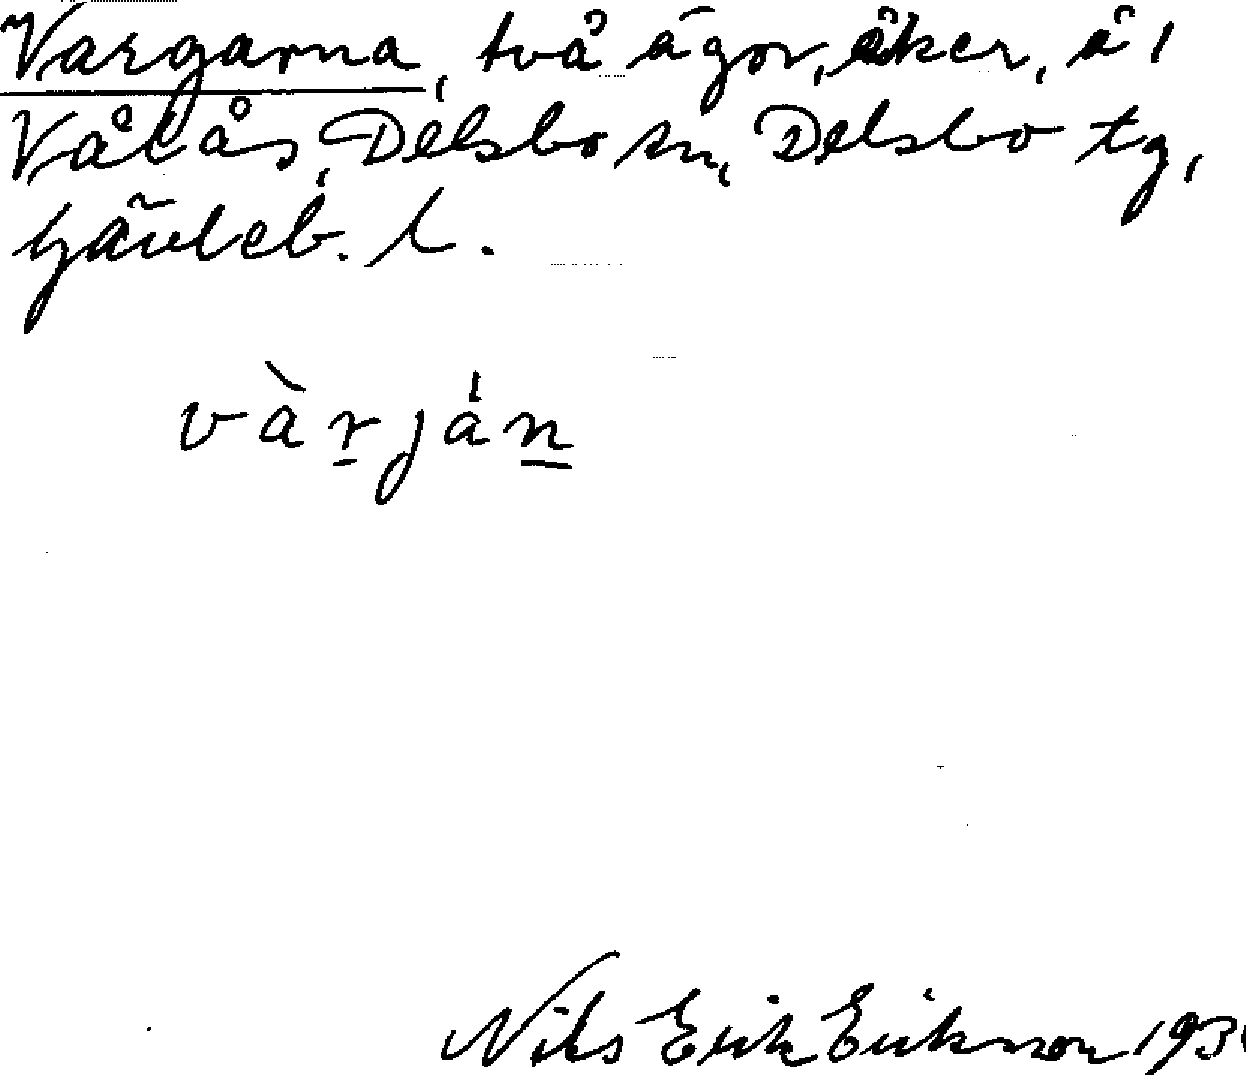 Vargarna, två ägor, åker, å 1
Våtås, Delsbo sn, Delsbo tg,
Gävleb. l.
vàrján
Nils Erik Erikson 193